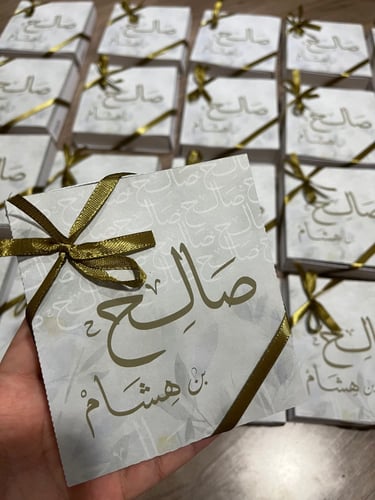 صَالِح
بن هِشَام